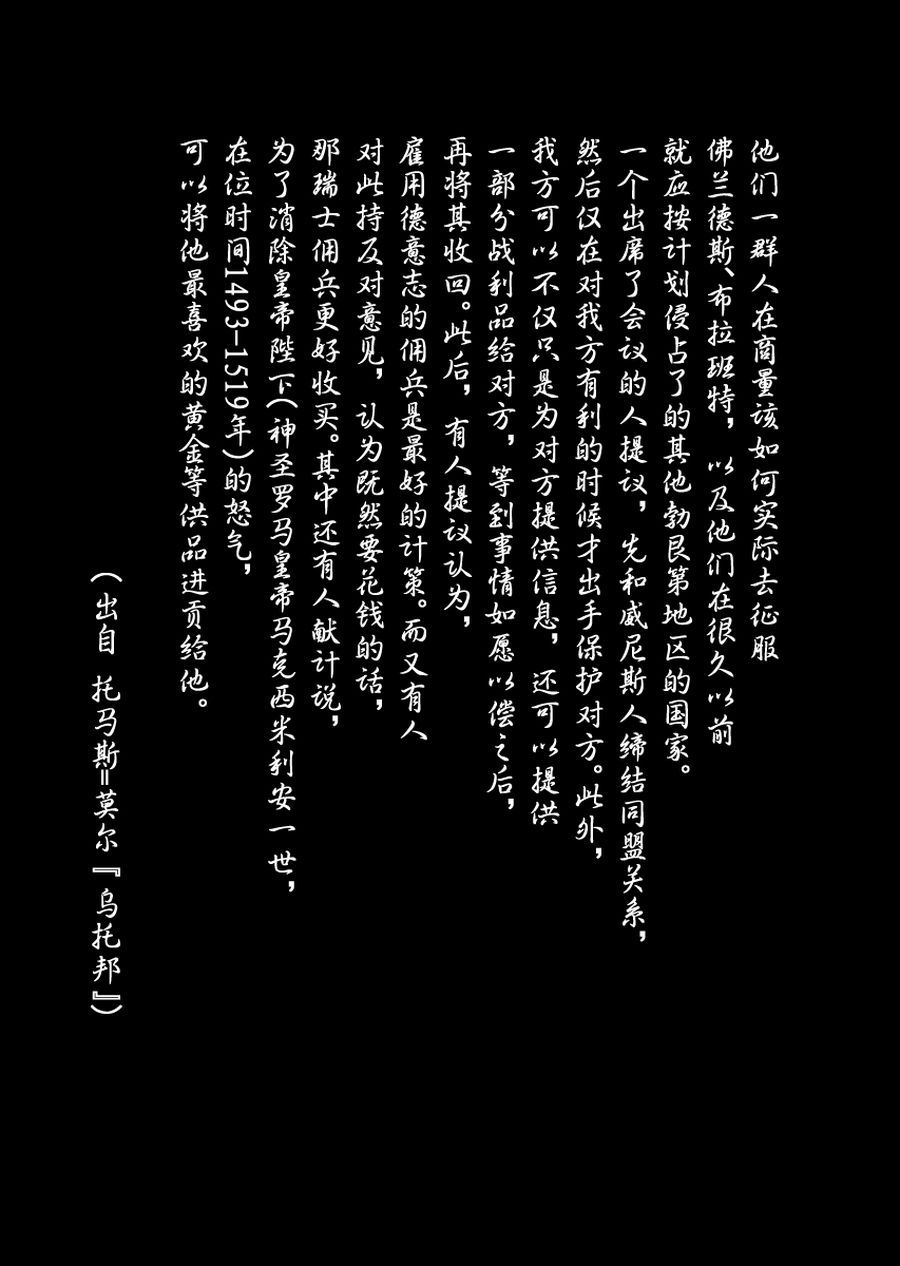 他们一群人在商量该如何实际去征服
佛兰德斯、布拉班特，以及他们在很久以前
就应按计划侵占了的其他勃艮第地区的国家。
一个出席了会议的人提议，先和威尼斯人缔结同盟关系，
然后仅在对我方有利的时候才出手保护对方。此外，
我方可以不仅只是为对方提供信息，还可以提供
一部分战利品给对方，等到事情如愿以偿之后，
再将其收回。此后，有人提议认为，
雇用德意志的佣兵是最好的计策。而又有人
对此持反对意见，认为既然要花钱的话，
那瑞士佣兵更好收买。其中还有人献计说，
为了消除皇帝陛下(神圣罗马皇帝马克西米利安一世，
在位时间1493-1519年)的怒气，
可以将他最喜欢的黄金等供品进贡给他。
(出自 托马斯=莫尔『乌托邦』)